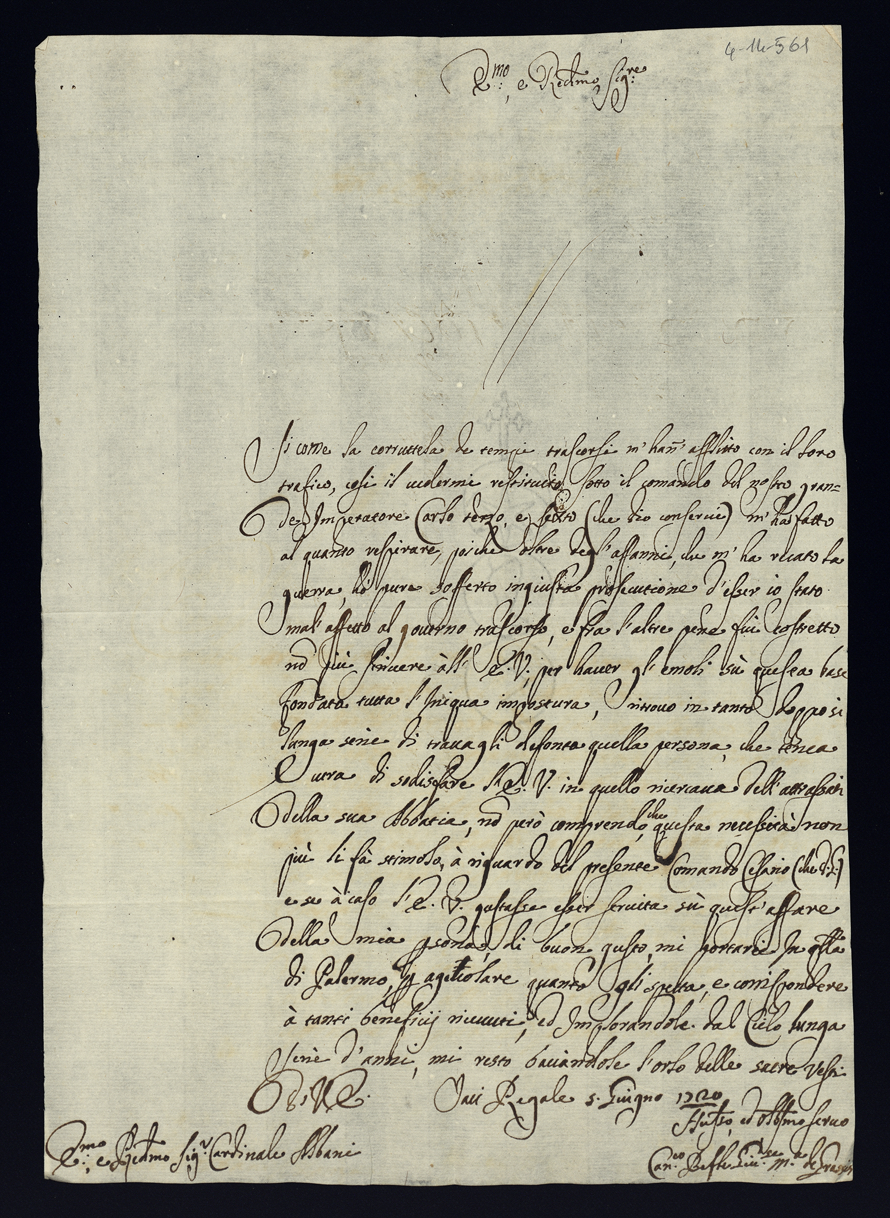 4-14-561
E.mo, e Re.dmo Sig.re
Si come la corruttela de tempi trascorsi m'han' afflitto con il loro
trafico, così il vedermi restituito sotto il comando del nostro gran=
de Imperatore Carlo terzo, e sesto (che Dio conservi) m'ha fatto
al quanto respirare, poiche oltre degl'affanni, che m'ha recato la
guerra, hò pure sofferto ingiusta prosecutione d'esser io stato
mal'affetto al governo trascorso, e frà l'altre pene fui costretto
nō più scrivere àll' E. V. per haver gl'emoli sù questa base
fondata tutta l'Iniqua impostura, ritrovo in tanto doppo si
lunga serie di travagli defonta quella persona, che tenea
cura di sodisfare l'E. V. in quello ricercava dell'attrassati
della sua Abbatia, nō però comprendo, che questa necessità non
più li fà stimolo, à riguardo del presente Comando Cesario (che D. G.)
e se à caso l'E. V. gustasse esser servita sù quest'affare
della mia psona, di buon gusto, mi portarei In
di Palermo, p agevolare quanto gli spetta, e corrispondere
à tanti beneficij ricevuti, ed Implorandole dal Cielo lunga
serie d'anni, mi resto baciandole l'orlo delle sacre vesti
D. V. E. Iaci Regale 5 Giugno 1720
ed Obb.mo servo
E.mo, e Re.dmo Sig.r Cardinale Albani
Can.co M.a de Grassi